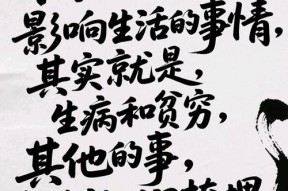 影响生活的事情,
其实就是,
生病和贫穷,
其他的事,